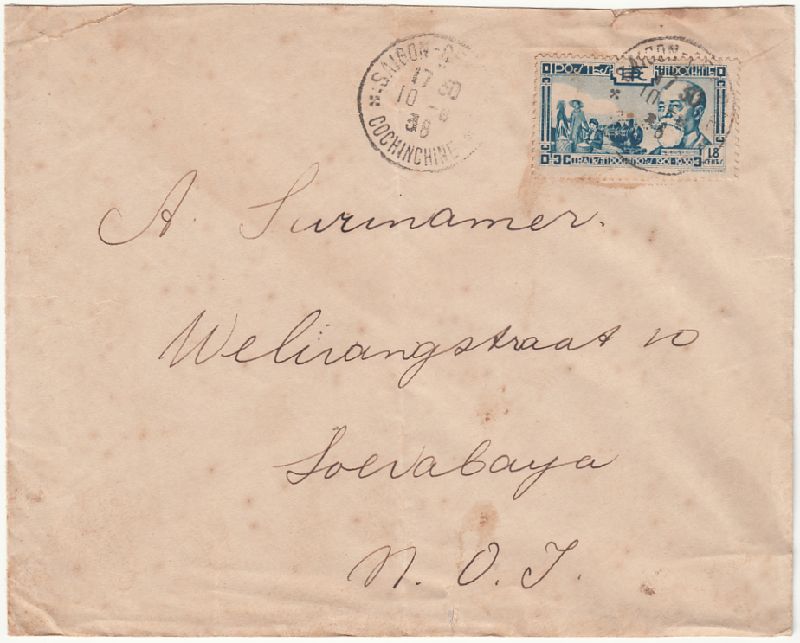 SAIGON
17 30
10
38
COCHINCHINE
POSTES RF INDOCHINE
18
CENTS
A. Surinamer.
Welirangstraat 10
Soerabaya
N. O. I.